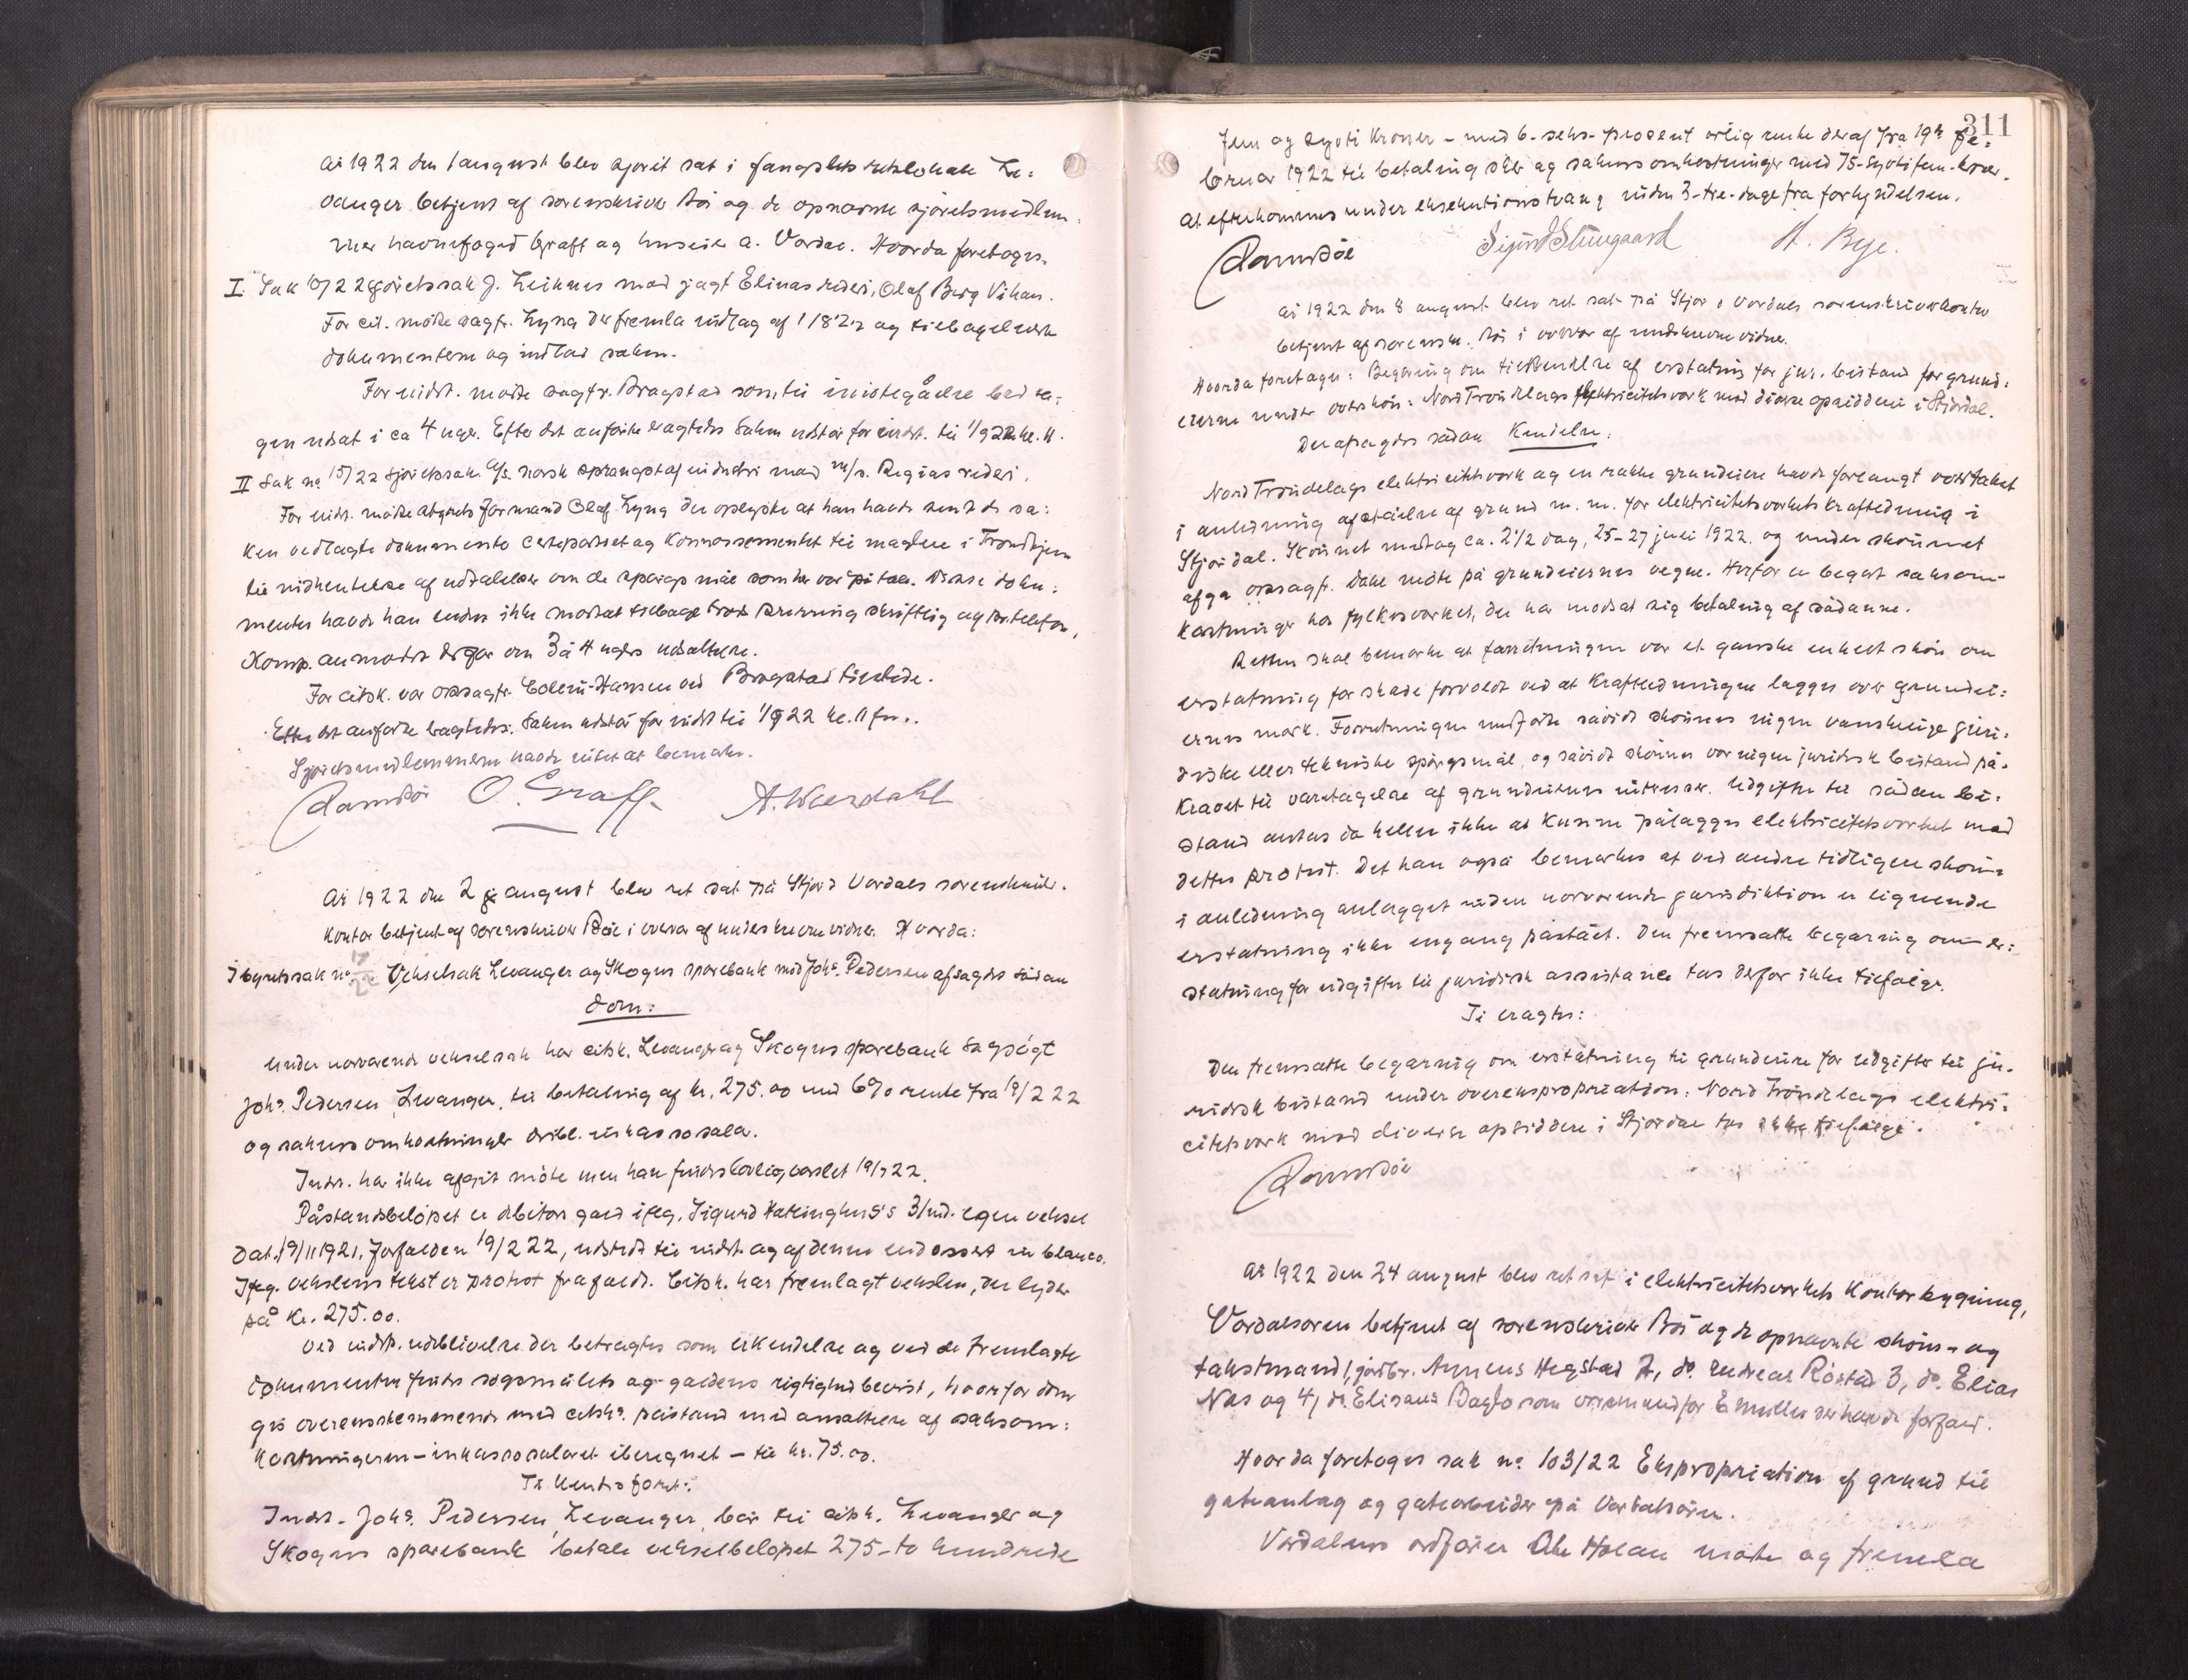 År 1922 den 1 august blev sjøret sat i fængslets retslokale Le-
vanger betjent af sorenskriver Bø og de opnævnte sjøretsmedlem-
mer havnefoged Graff og huseier A. Værdal. Hvorda foretoges:
I. Sak 10/22 Sjøretssak J. Leiknes mod jagt Elinas rederi, Olaf Berg Vikan.
For cit. møtte sagfr. Lyng der fremla indlæg af 1/8 22 og tilbageleverte
dokumenterne og indlod saken.
For indst. møtte sagfr. Bragstad som til imøtegåelse bad sa-
gen utsat i ca 4 uger. Efter det anførte vagtedes Saken utstår for indst. til 1/9 22 kl. 11.
II Sak no 15/22 Sjøretssak A/S norsk sprængstofindustri mod m/s. Reginas rederi.
For indst. møtte Olaf Lyng der oplyste at han havde sendt de sa-
ken vedlagte dokumenter certepartiet og konnossementet til mæglere i Trondhjem
til indhentelse af uttalelser om de spørgsmål som her var på tale. Disse doku-
menter havde han endnu ikke mottat tilbage trods purring skriftlig og pr. telefon,
Komp. anmodet derfor om 3 à 4 ugers utsættelse.
For citsk. var o.r.sagfr. Collin-Hansen ved Bragstad tilstede.
Efter det anførte vagtedes: Saken utstår for indst til 1/9 22 kl. 11 fm..
Sjøretsmedlemmerne havde intet at bemærke.
Ramm Bø O. Graff A. Wærdahl
År 1922 den 2 august blev ret sat på Stjør- & Værdals sorenskriver-
kontor betjent af sorenskriver Bø i overvær af underskrevne vidner. Hvorda:
I bytingssak no Vekselsak Levanger og Skogns sparebank mod Johs. Pedersen afsagdes sådan
dom:
Under nærværende vekselsak har citsk. Levanger og Skogns sparebank sagsøgt
Johs. Pedersen, Levanger, til betaling af kr. 275.00 med 6% rente fra 19/2 22
og sakens omkostninger deribl. inkassosalær.
Indst. har ikke afgit møte men han findes lovlig varslet 19/7 22.
Påstandsbeløpet er debitors gæld ifølg. Sigurd 3/md. egen veksel
dat. 19/11 1921, forfalden 19/2 22, utstedt til indst. og af denne endossert in blanco.
Ifølg. vekslens tekst er protest frafaldt. Citsk. har fremlagt vekslen, der lyder
på kr. 275.00.
Ved indst. utblivelse der betragtes som erkjendelse og ved de fremlagte
dokumenter findes søgsmålets og gældens rigtighed bevist, hvorfor dom
gis overensstemmende med citsk's påstand med ansættelse af saksom-
kostningerne – inkassosalæret iberegnet – til kr. 75.00.
Ti kjendes for ret:
Indst. Johs. Pedersen, Levanger, bør til citsk. Levanger og
Skogns sparebank betale vekselbeløpet 275 – to hundrede
311
fem og sytti kroner – med 6 – seks – procent årlig rente deraf fra 19de fe-
bruar 1922 til betaling sker og sakens omkostninger med 75 – syttifem – kroner.
At efterkommes under eksekutionstvang inden 3 – tre – dage fra forkyndelsen.
Ramm Bø Sigurd Stuegaard A. Bye.
År 1922 den 8 august blev ret sat på Stjør & Værdals sorenskriverkontor
betjent af sorenskr. Bø i overvær af underskrevne vidner.
Hvorda foretoges: Begjæring om tilkjendelse af erstatning for jur. bistand for grund-
eierne under overskjøn: Nord Trøndelags elektricitetsverk mod diverse opsiddere i Stjørdal.
Der afsagdes sådan Kjendelse:
Nord Trøndelags elektricitetsverk og en række grundeiere havde forlangt overtakst
i anledning afståelse af grund m. m. for elektricitetsverkets kraftledning i
Stjørdal. Skjønnet medtog ca. 2 1/2 dag, 25–27 juli 1922. og under skjønnet
afga o.r.sagfr. Dahl møte på grundeiernes vegne. Herfor er begjært saksom-
kostninger hos fylkesverket, der har modsat sig betaling af sådanne.
Retten skal bemærke at forretningen var et ganske enkelt skjøn om
erstatning for skade forvoldt ved at kraftledningen lægges over grundei-
ernes mark. Forretningen medførte såvidt skjønnes ingen vanskelige juri-
diske eller tekniske spørgsmål, og såvidt skjønnes var ingen juridisk bistand på-
krævet til varetagelse af grundeiernes interesser. Udgifter til sådan bi-
stand antas da heller ikke at kunne pålægges elektricitetsverket mod
dettes protest. Det kan også bemærkes at ved andre tidligere skjøn
i anledning anlægget inden nærværende jurisdiktion er lignende
erstatning ikke engang påstået. Den fremsatte begjæring om er-
statning for udgifter til juridisk assistance tas derfor ikke tilfølge.
Ti eragtes:
Den fremsatte begjæring om erstatning til grundeiere for udgifter til ju-
ridisk bistand under overekspropriation: Nord Trøndelags elektri-
citetsverk mod diverse opsiddere i Stjørdal tas ikke tilfølge.
Ramm Bø
År 1922 den 24 august blev ret sat i elektricitetsverkets kontorbygning,
Værdalsøren betjent af sorenskriver Bø og de opnævnte skjøns- og
takstmænd 1, gårdbr. Annæus Hegstad 2, do. Andreas Røstad 3, do. Elias
Næs og 4, do. Eliseus Baglo som varamand for E Müller der havde forfald.
Hvorda foretoges sak no 103/22 Ekspropriation af grund til
gateanlæg og gatearbeider på Værdalsøren.
Værdalens ordfører Ole Holan møtte og fremla